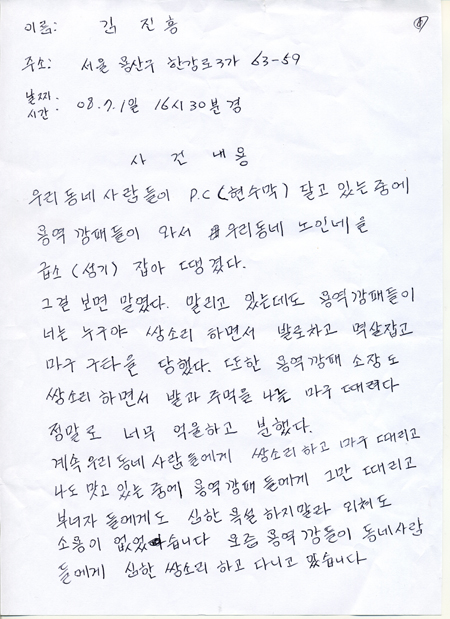 이름: 김 진 홍
주소: 서울 용산구 한강로3가 63-59
날짜.
시간: 08.7.1일 16시30분경
사건내용
우리동네사람들이 P.C(현수막) 달고 있는중에
용역깡패들이 와서 우리동네 노인네을
급소(성기) 잡아 땡겼다.
그걸 보면 말렸다. 말리고 있는데도 용역깡패들이
너는 누구야 쌍소리 하면서 발로차고 멱살잡고
마구 구타을 당했다. 또한 용역깡패 소장도
쌍소리 하면서 발과 주먹을 나늘 마구 때려다
정말로 너무 억울하고 분했다.
계속우리동네사람들에게 쌍소리하고 마구 때리고
나도 맞고 있는중에 용역깡패들에게 그만 때리고
부녀자들에게도 심한 욕설 하지말라 외쳐도
소용이 없었습니다 요즘 용역깡들이 동네사람
들에게 심한 쌍소리 하고 다니고 있습니다